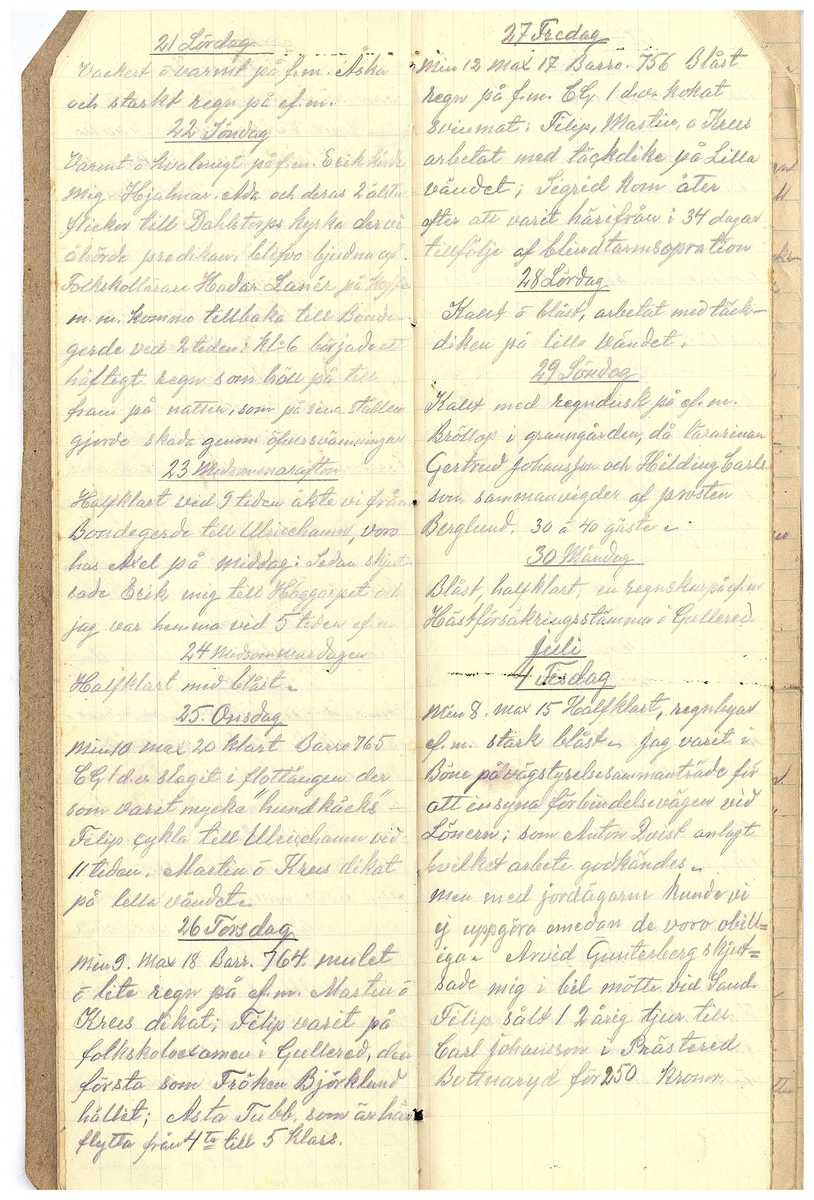 21 Lördag
Vackert ö varmt på f.m. Åska
och starkt regn på ef.m.
22 Söndag
Varmt ö kvalmigt på f.m. Erik körde
mig, Hjalmar, Ada och deras 2 älsta
flickor till Dahlstorps kyrka der vi
åhörde predikan, blefvo bjudna af
Folkskollärare Hadar Lanér på kaffe
m.m. kommo tillbaka till Bonde-
gerde ved 2 tiden; kl. 6 började ett
häftigt regn som höll på till
fram på natten, som på sina ställen
gjorde skada genom öfversvämningar
23 Midsommarafton
Halfklart vid 9 tiden åkte vi från
Bondegerde till Ulricehamn, voro
hos Axel på middag; Sedan skjut-
sade Erik mig till Häggarpet och
jag var hemma vid 5 tiden ef.m
24 Midsommardagen
Halfklart med blåst.
25. Onsdag
Min 10 max 20 Klart Barro 765
CG 1 d.v. slagit i flottängen der
som varit mycke "hundkäcks" -
Filip cykla till Ulricehamn vid
11 tiden. Martin ö Kreis dikat
på lilla vändet.
26 Torsdag
Min 9. Max 18 Barr. 764. mulet
ö lite regn på ef.m. Martin ö
Kreis dikat; Filip varit på
folkskolexamen i Gullered, den
första som Fröken Björklund
hållit; Asta Tubb. som är här
flytta från 4 ta till 5 klass.
27 Fredag
Min 12 max 17 Barro. 756 Blåst
regn på f.m. CG. 1 d.v. kokat
svinmat; Filip, Martin, o Kreis
arbetat med täckdike på Lilla
vändet; Sigrid kom åter
efter att varit härifrån i 34 dagar
tillfölje af blindtarmsopration
28 Lördag
Kallt ö blåst, arbetat med täck-
diken på lilla vändet.
29 Söndag
Kallt med regndusk på ef.m.
Bröllop i granngården, då lärarinan
Gertrud Johansson och Hilding Carls
son sammanvigder af prosten
Berglund. 30 á 40 gäster.
30 Måndag
Blåst, halfklart, en regnskur på ef.m
Hästförsäkringsstämma i Gullered.
Juli
1 Tisdag
Min 8. max 15 Halfklart, regnbyar
ef.m. stark blåst. jag varit i
Böne på vägstyrelsesammanträde för
att insyna förbindelsevägen vid
Lönern; som Anton Qvist anlagt
hvilket arbete godkändes.
men med jordägarne kunde vi
ej uppgöra emedan de voro obill=
iga. Arvid Gunterberg skjut=
sade mig i bil mötte vid Sand.
Filip sålt 1 2 årig tjur till
Carl Johansson i Prästered
Bottnaryd för 250 Kronor.